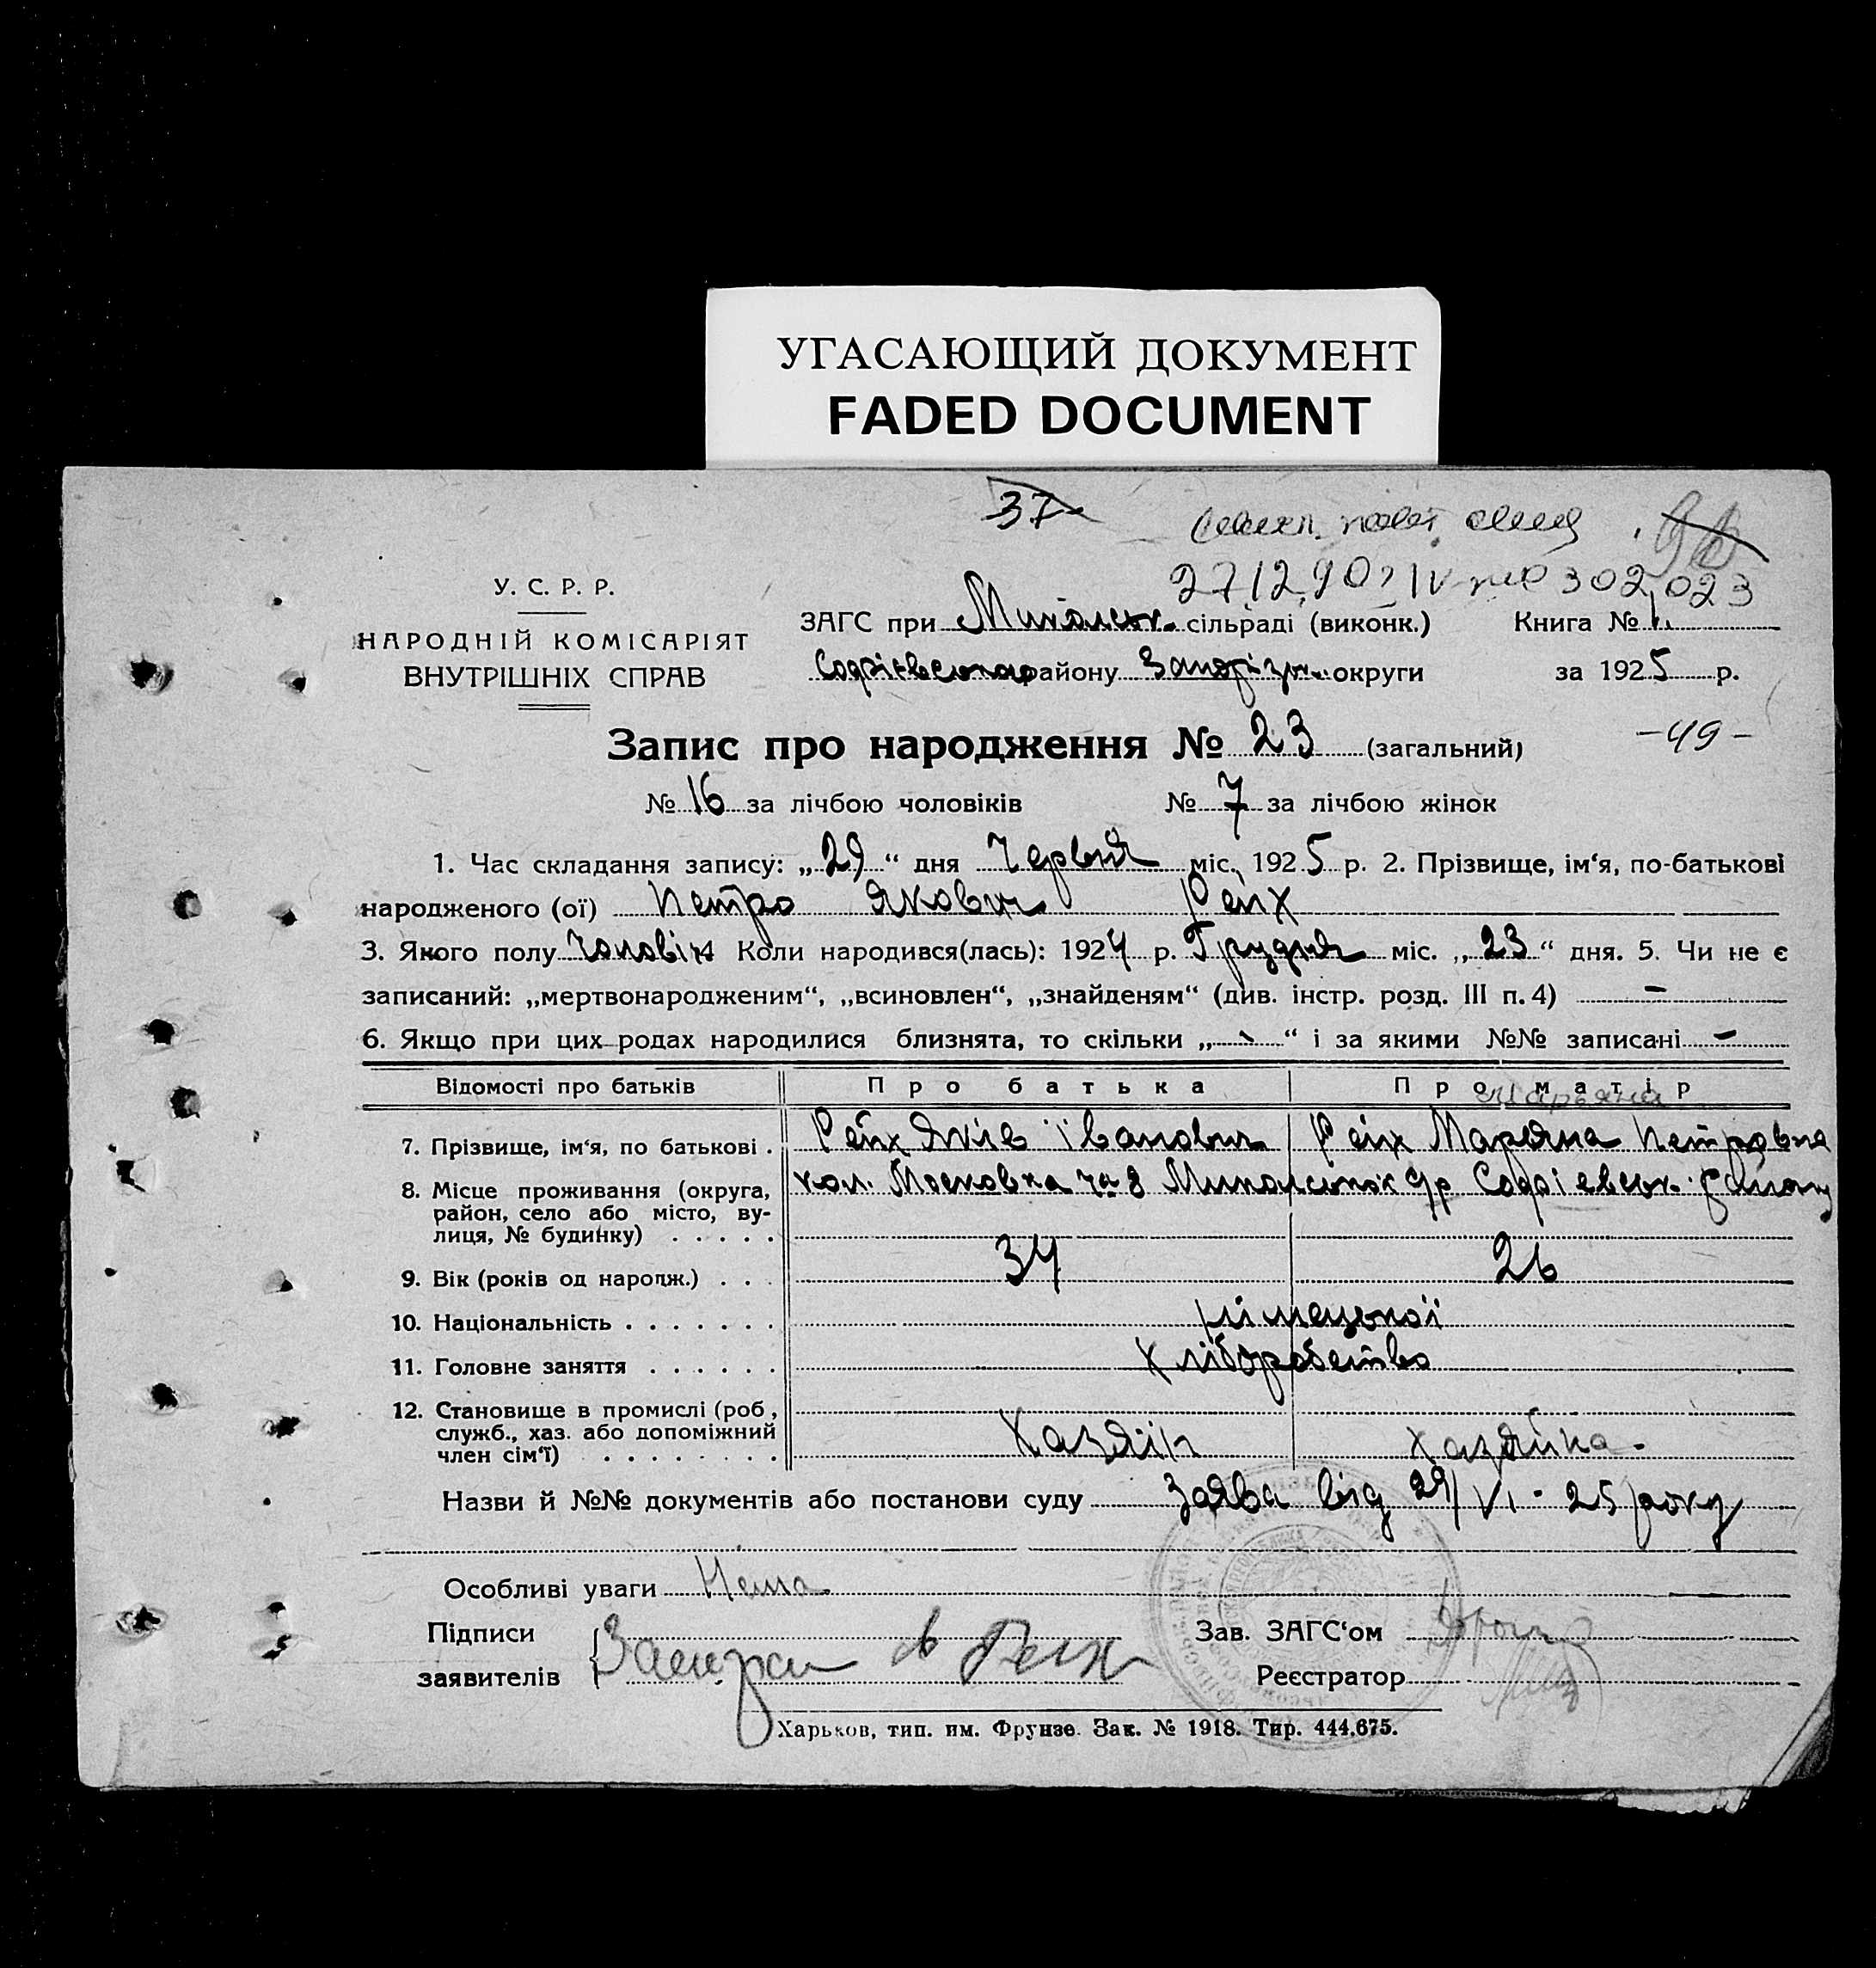 УГАСАЮЩИЙ ДОКУМЕНТ
FADED DOCUMENT
37
2712902 IV 302023
У. С. Р. Р.
НАРОДНІЙ КОМІСАРІЯТ
ВНУТРІШНІХ СПРАВ
ЗАГС при Микольськ. сільраді (виконк.) Книга № 1.
району Запоріз. округи за 1925 р.
Запис про народження № 23 (загальний)
-49-
№ 16 за лічбою чоловіків № 7 за лічбою жінок
1. Час складання запису: „29“ дня Червня міс. 1925 р. 2. Прізвище, ім‘я, по-батькові
народженого (ої) Петро Якович Реіх
3. Якого полу Чоловіч 4 Коли народився(лась): 1924 р. Грудня міс. „23“ дня. 5. Чи не є
записаний: „мертвонародженим“, „всиновлен“, „знайденям“ (див. інстр. розд. III п. 4) -
6. Якщо при цих родах народилися близнята, то скільки „-“ і за якими №№ записані -
Відомості про батьків Про батька Про матір
7. Прізвище, ім‘я, по батькові . Реіх Яків Іванович Реіх Маряна Петровна
8. Місце проживання (округа, район, село або місто, вулиця, № будинку) . . . . . кол. Московка Микольськ с/р району
9. Вік (років од нарodж.) . . . 34 26
10. Національність . . . . . . . німецької
11. Головне заняття . . . . . . хліборобство
12. Становище в промислі (роб., служб., хаз. або допоміжний член сім‘ї) . . . . . . . . Хазяін хазяйка.
Назви й №№ документів або постанови суду Заява від 29/VI-25 року
Особливі уваги Нема
Підписи
заявителів Реих
Зав. ЗАГС‘ом
Реєстратор
Харьков, тип. им. Фрунзе. Зак. № 1918. Тир. 444.675.